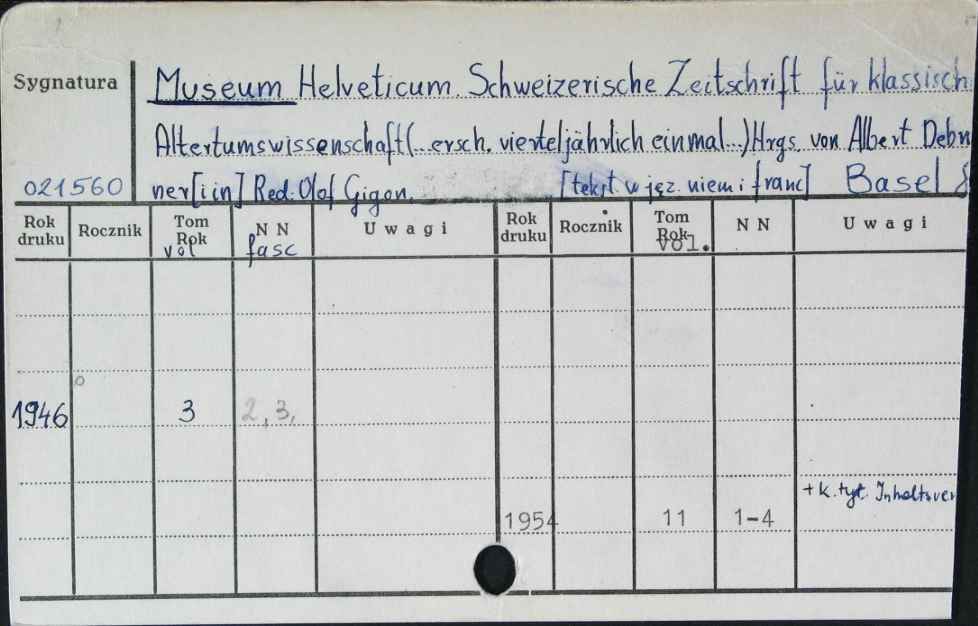 Sygnatura
Museum Helveticum. Schweizerische Zeitschrift für klassisch
Altertumswissenschaft(...ersch. vierteljährlich einmal...)Hrgs. von Albert Debrn
021560 ner[i in] Red. Olof Gigon. [tekst. w jęz. niem i franc] Basel &
Rok druku Rocznik Tom Rok vol N N fasc Uwagi Rok druku Rocznik Tom Rok vol. N N Uwagi
1946 3 2, 3,
+ k. tyt. Inhaltsver
1954 11 1-4